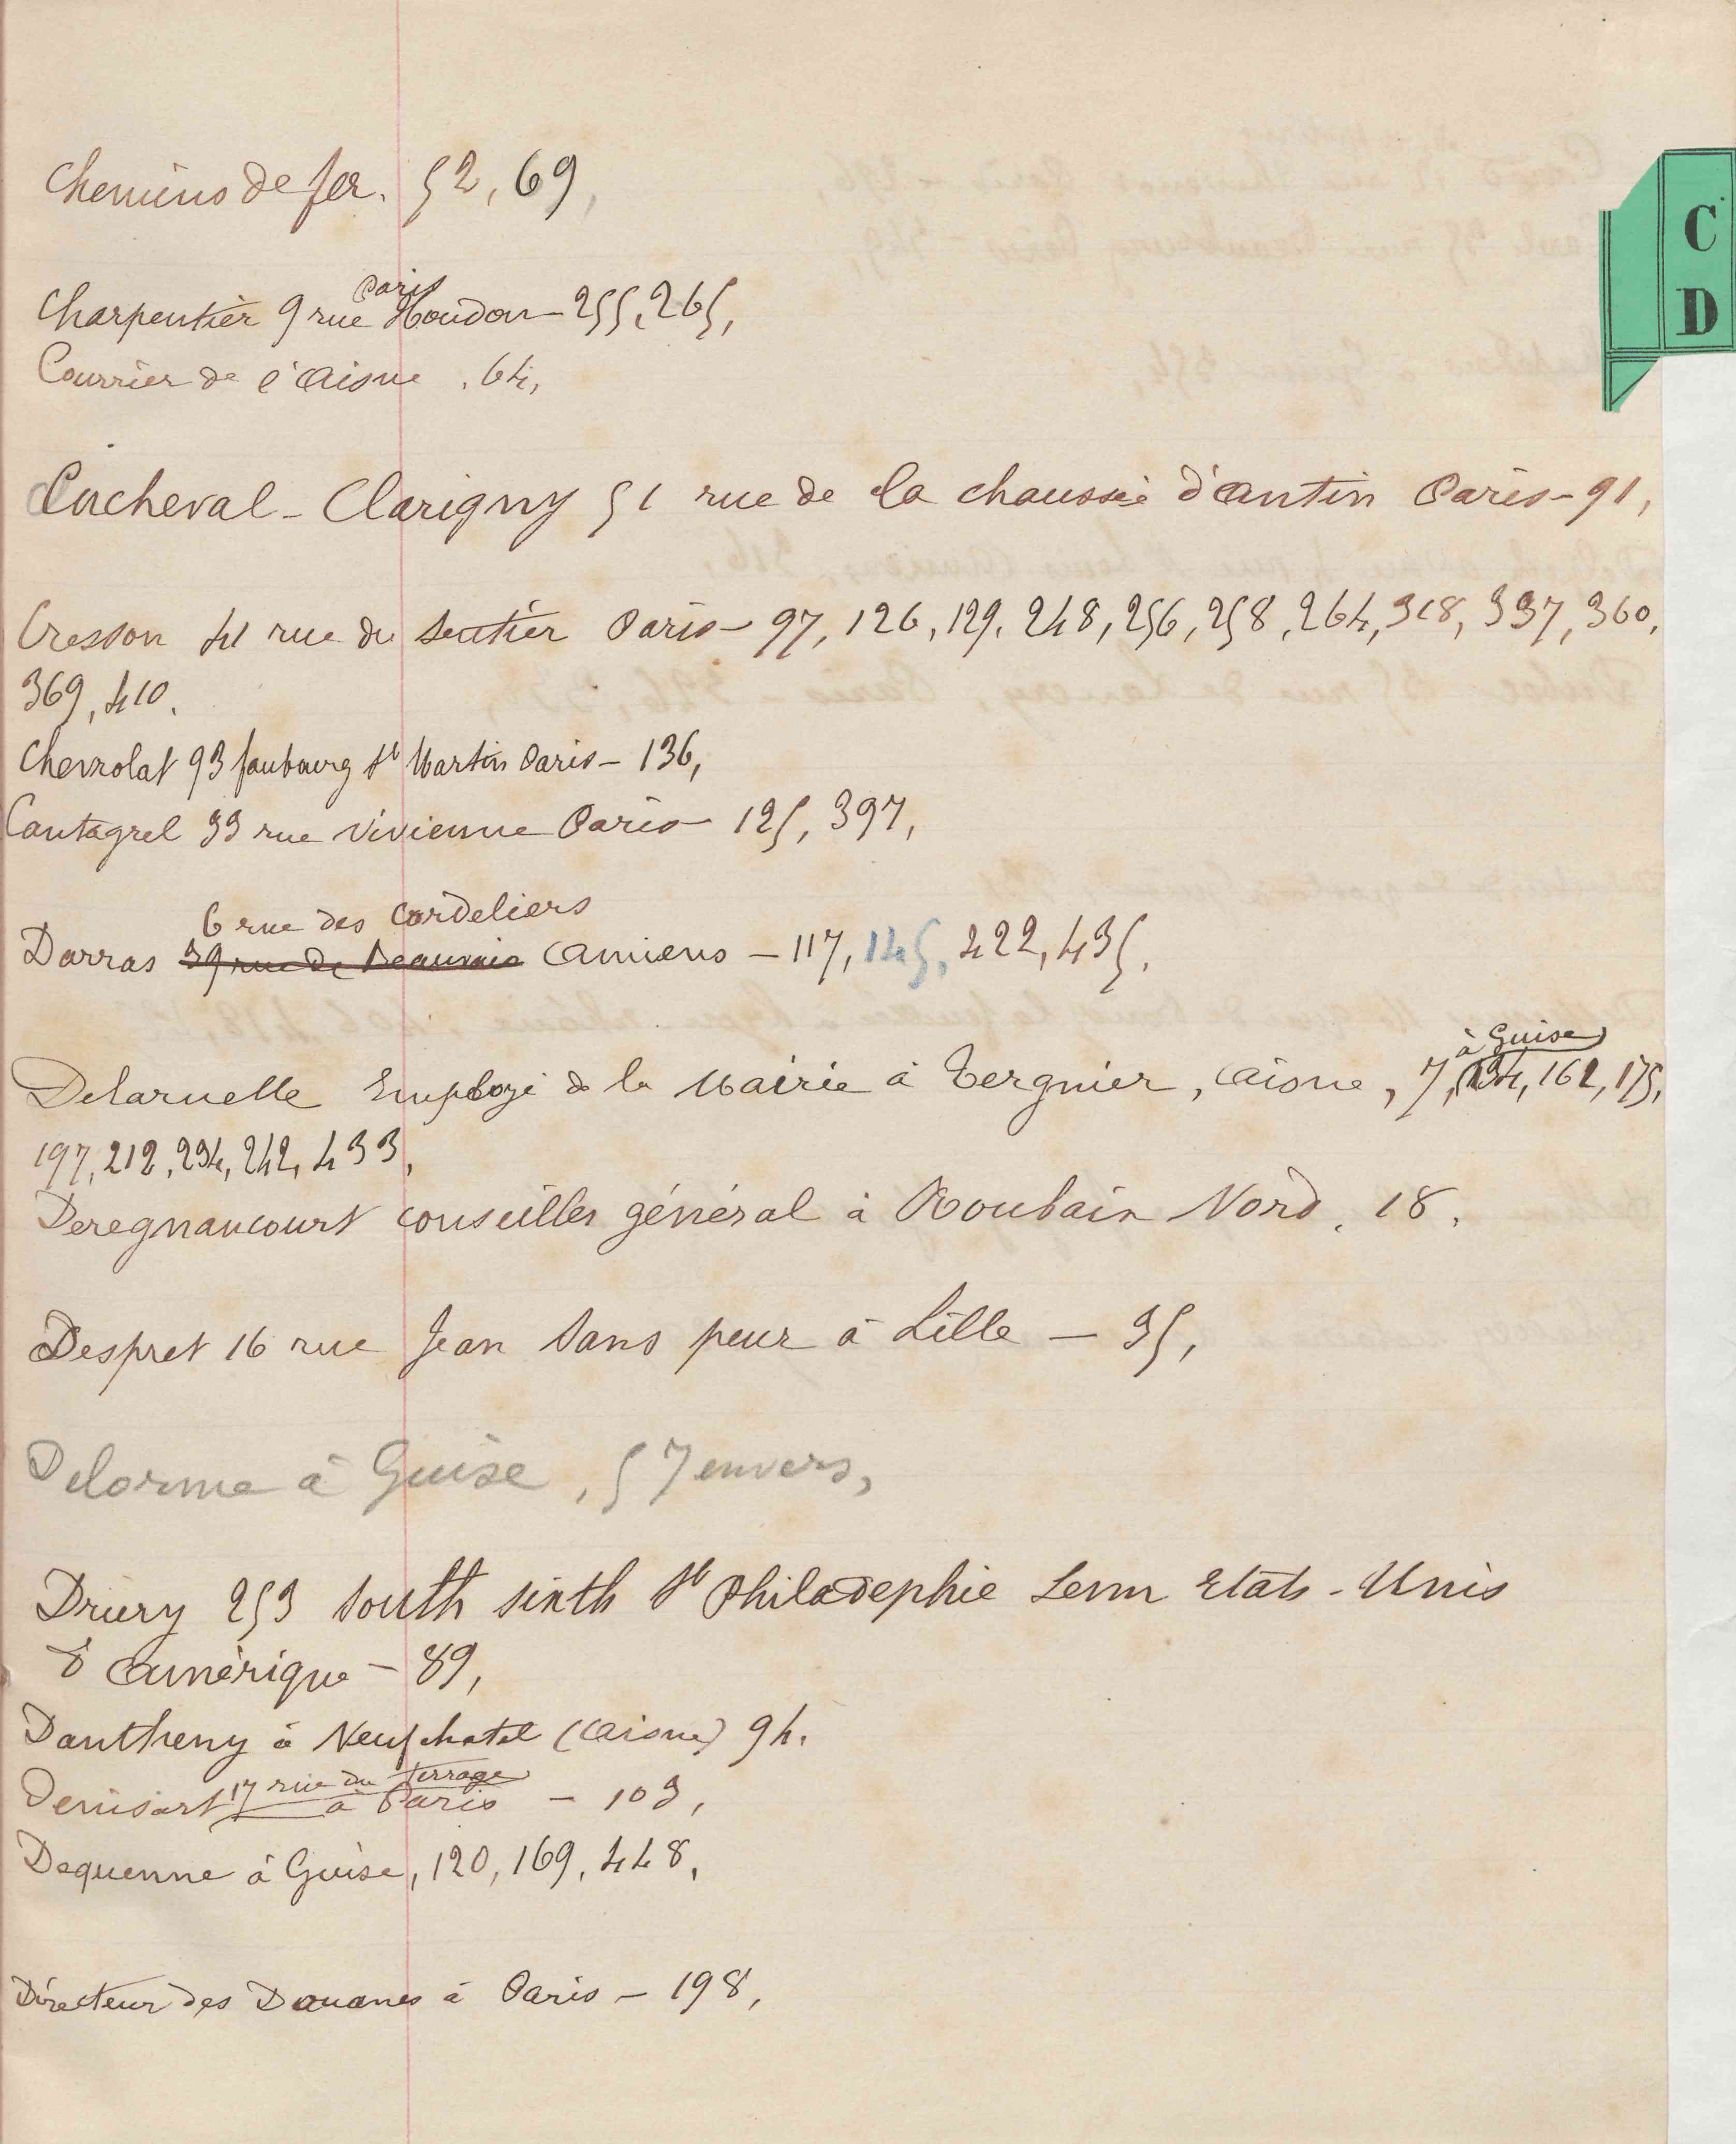 C
D
Chemins de fer. 52, 69,
Paris
Charpentier 9 rue Houdon – 255, 265,
Courrier de l'Aisne . 64,
Cucheval-Clarigny 51 rue de la chaussée d'Antin Paris – 91,
Cresson 41 rue du Sentier Paris – 97, 126, 129, 248, 256, 258, 264, 318, 337, 360,
369, 410.
Chevrolat 93 faubourg St Martin Paris – 136,
Cantagrel 33 rue Vivienne Paris – 125, 397,
6 rue des Cordeliers
Darras 39 rue de Beauvais Amiens – 117, 145, 422, 435.
à Guise
Delaruelle Employé de la Mairie à Tergnier, Aisne, 7, 134, 162, 175,
197, 212, 234, 242, 433,
Deregnaucourt conseiller général à Roubaix Nord. 18.
Despret 16 rue Jean Sans peur à Lille – 35,
Delorme à Guise, 57 envers,
Drury 253 South Sixth St Philadephie Etats-Unis
d'Amérique – 89,
Dantheny à Neufchatel (Aisne) 94.
17 rue du Terrage
Denisart à Paris – 103,
Dequenne à Guise, 120, 169, 448,
Directeur des Douanes à Paris – 198,